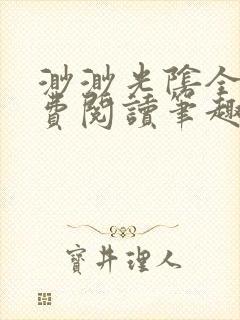 渺渺光陰全
費閱讀筆趣
寶井理人